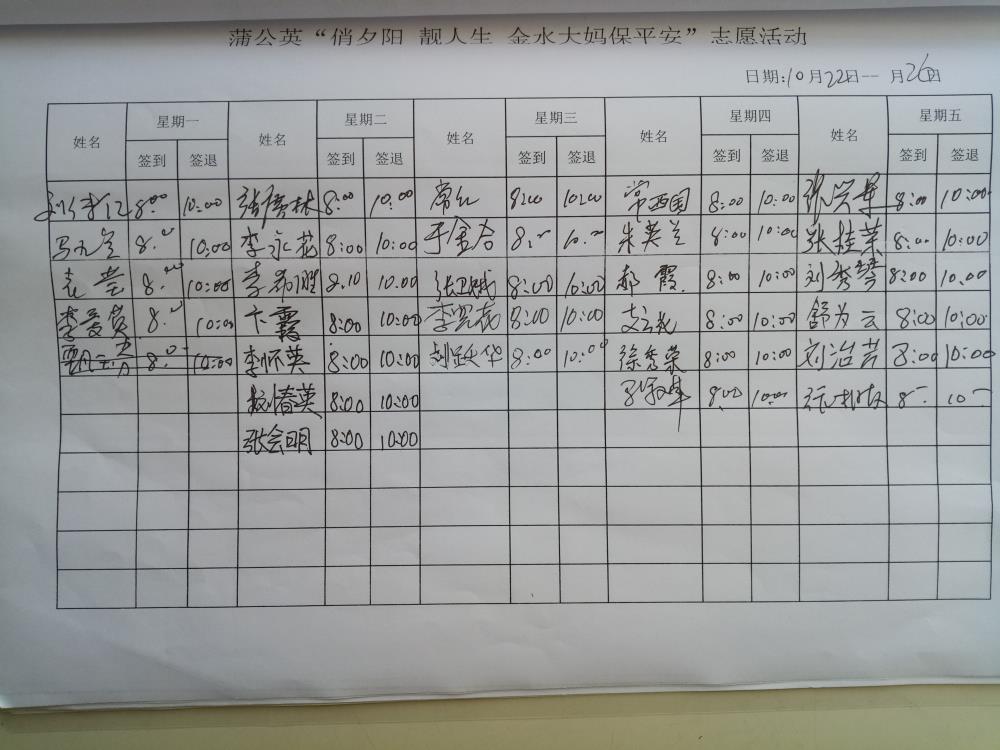 蒲公英“俏夕阳 靓人生 金水大妈保平安”志愿活动
日期:10月22日-- 月26日
姓名 星期一 姓名 星期二 姓名 星期三 姓名 星期四 姓名 星期五
签到 签退 签到 签退 签到 签退 签到 签退 签到 签退
8:00 10:00 8:00 10:00 常红 8:00 10:00 常西国 8:00 10:00 8:00 10:00
8:00 10:00 李永花 8:00 10:00 8:00 10:00 朱英兰 8:00 10:00 张桂荣 8:00 10:00
袁莹 8:00 10:00 李希胜 8:10 10:00 张卫斌 8:00 10:00 郝霞 8:00 10:00 刘秀琴 8:00 10:00
8:00 10:00 卞霞 8:00 10:00 8:00 10:00 8:00 10:00 舒为云 8:00 10:00
8:00 10:00 李怀英 8:00 10:00 8:00 10:00 徐秀荣 8:00 10:00 刘治芳 8:00 10:00
春英 8:00 10:00 8:00 10:00 8- 10-
张会明 8:00 10:00